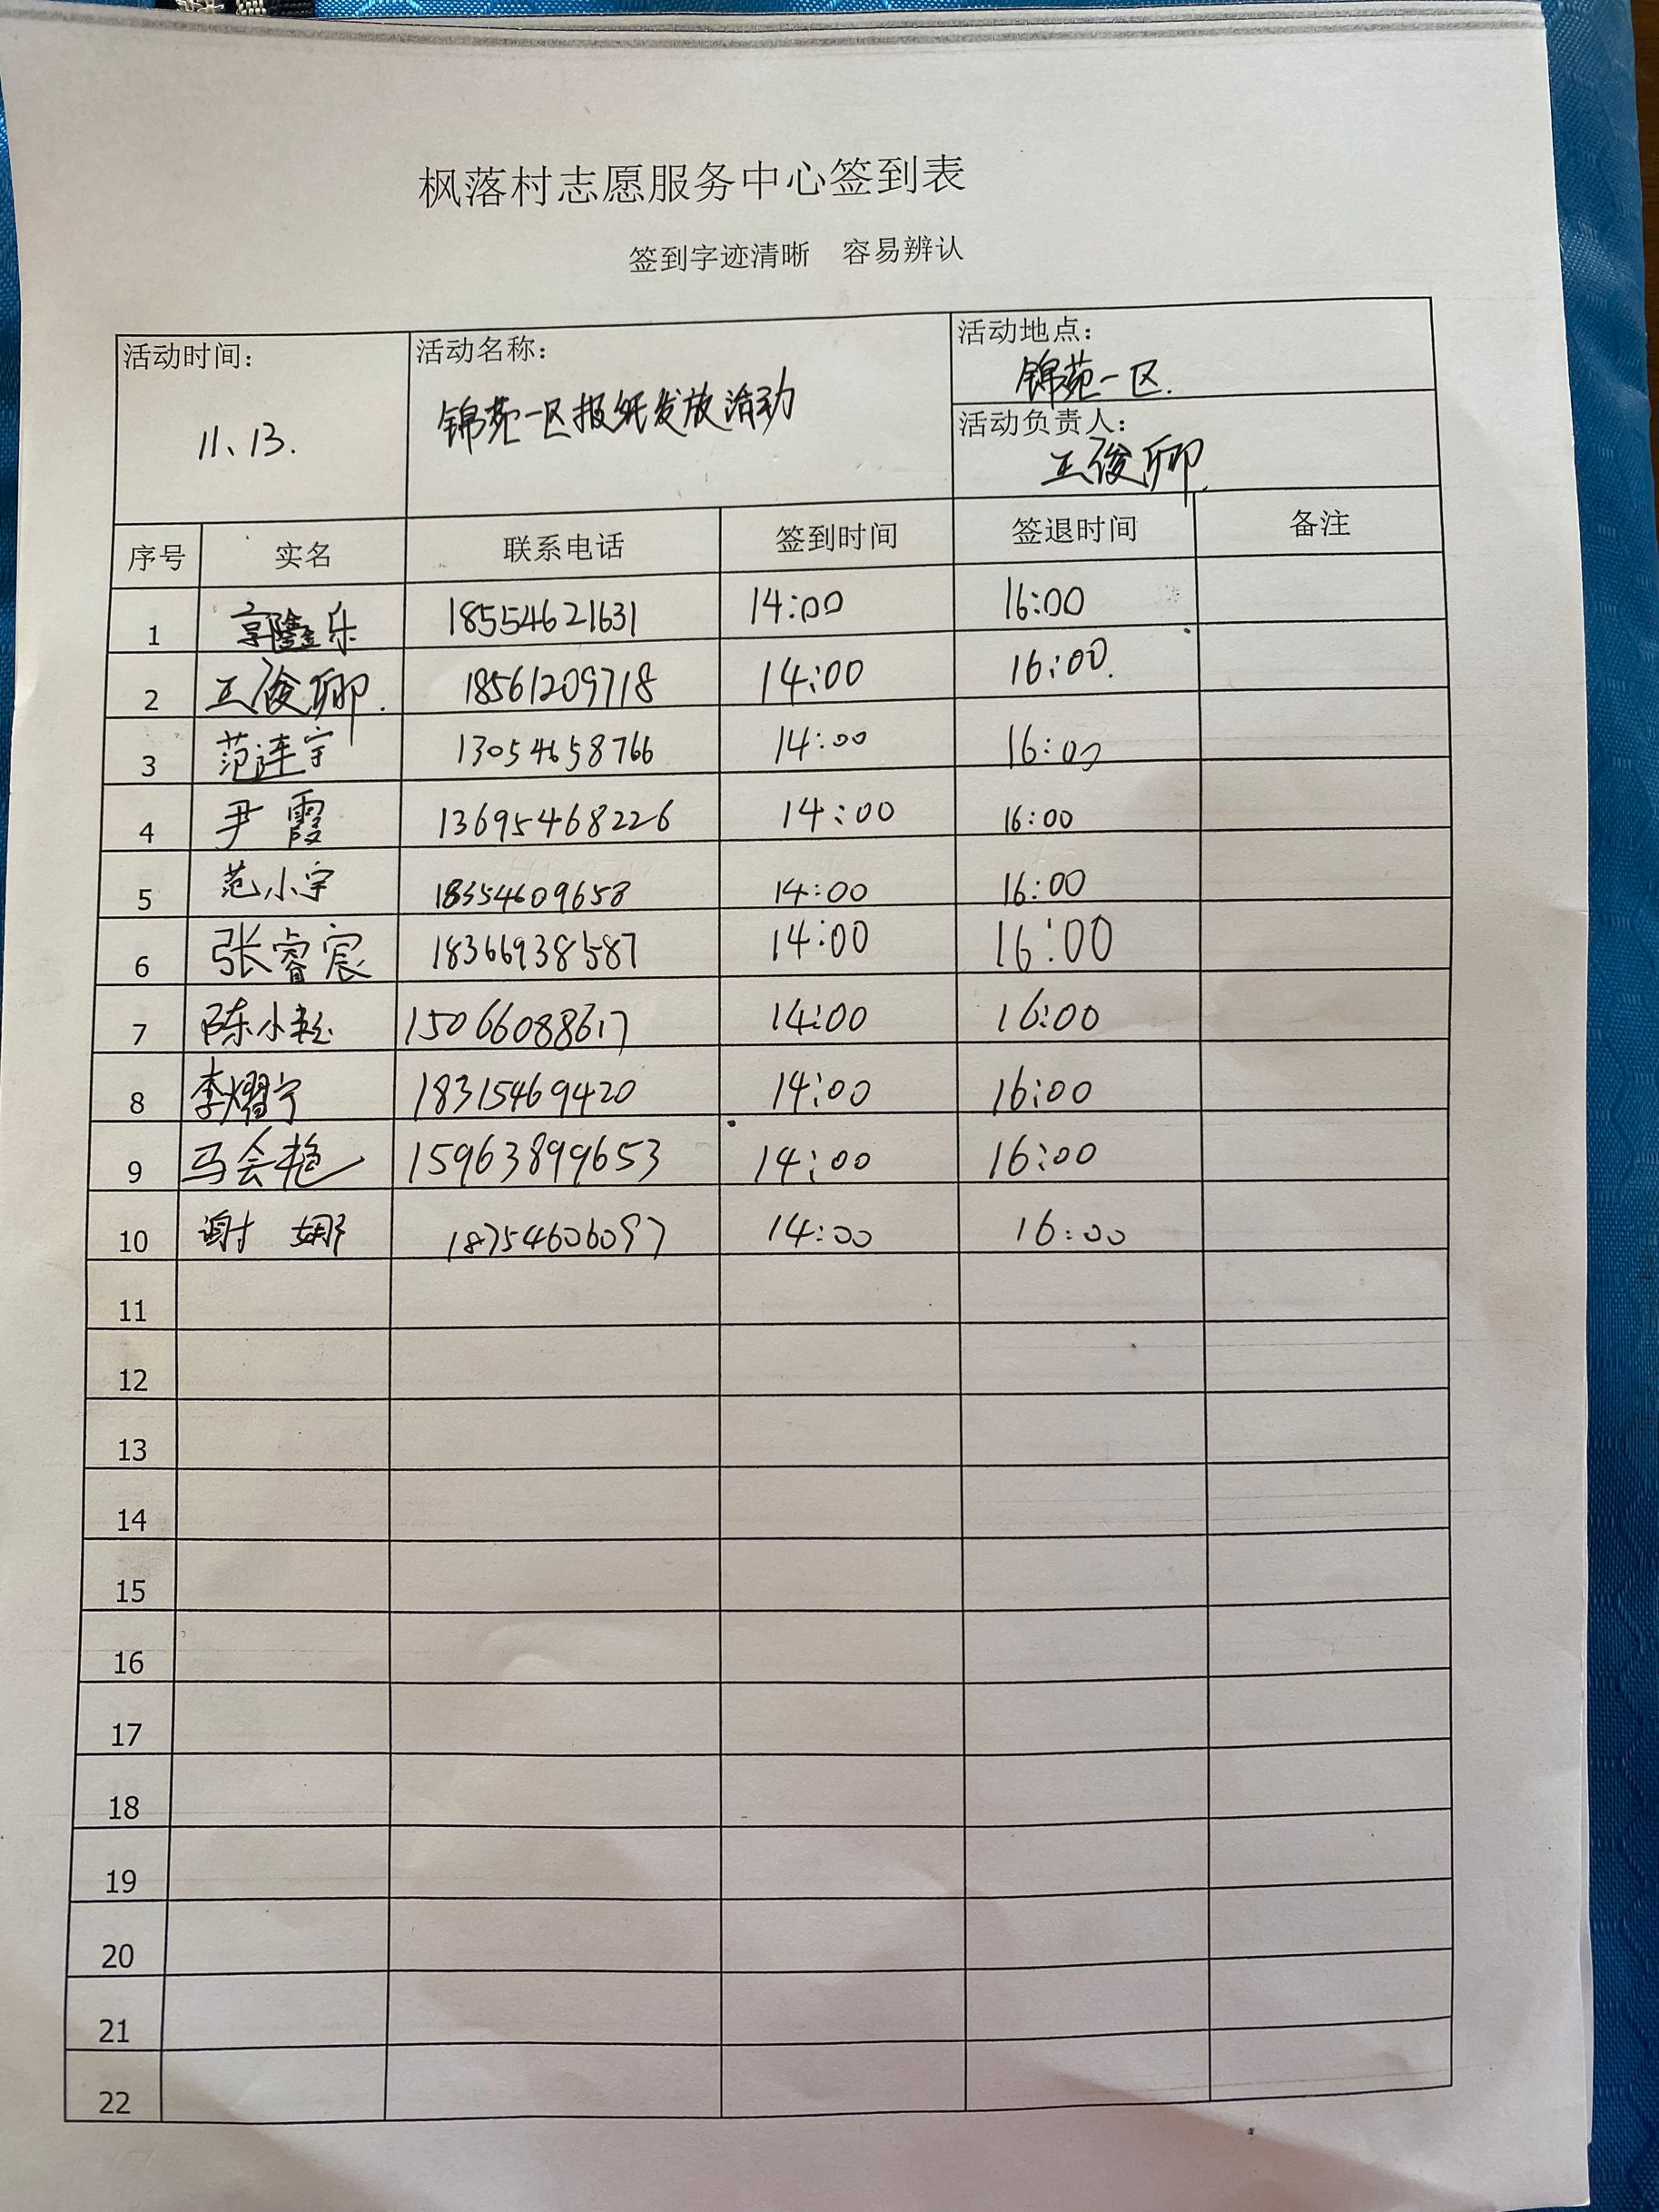 枫落村志愿服务中心签到表
签到字迹清晰 容易辨认
活动时间: 11、13.
活动名称: 锦苑一区报纸发放活动
活动地点: 锦苑一区.
活动负责人: 王俊卿
序号 实名 联系电话 签到时间 签退时间 备注
1 郭鑫乐 18554621631 14:00 16:00
2 王俊卿. 18561209718 14:00 16:00.
3 范连宇 13054658766 14:00 16:00
4 尹霞 13695468226 14:00 16:00
5 范小宇 18354609658 14:00 16:00
6 张睿宸 18366938587 14:00 16:00
7 陈小 15066088617 14:00 16:00
8 李熠宁 18315469420 14:00 16:00
9 马会艳 15963899653 14:00 16:00
10 谢娜 18754606097 14:00 16:00
11
12
13
14
15
16
17
18
19
20
21
22